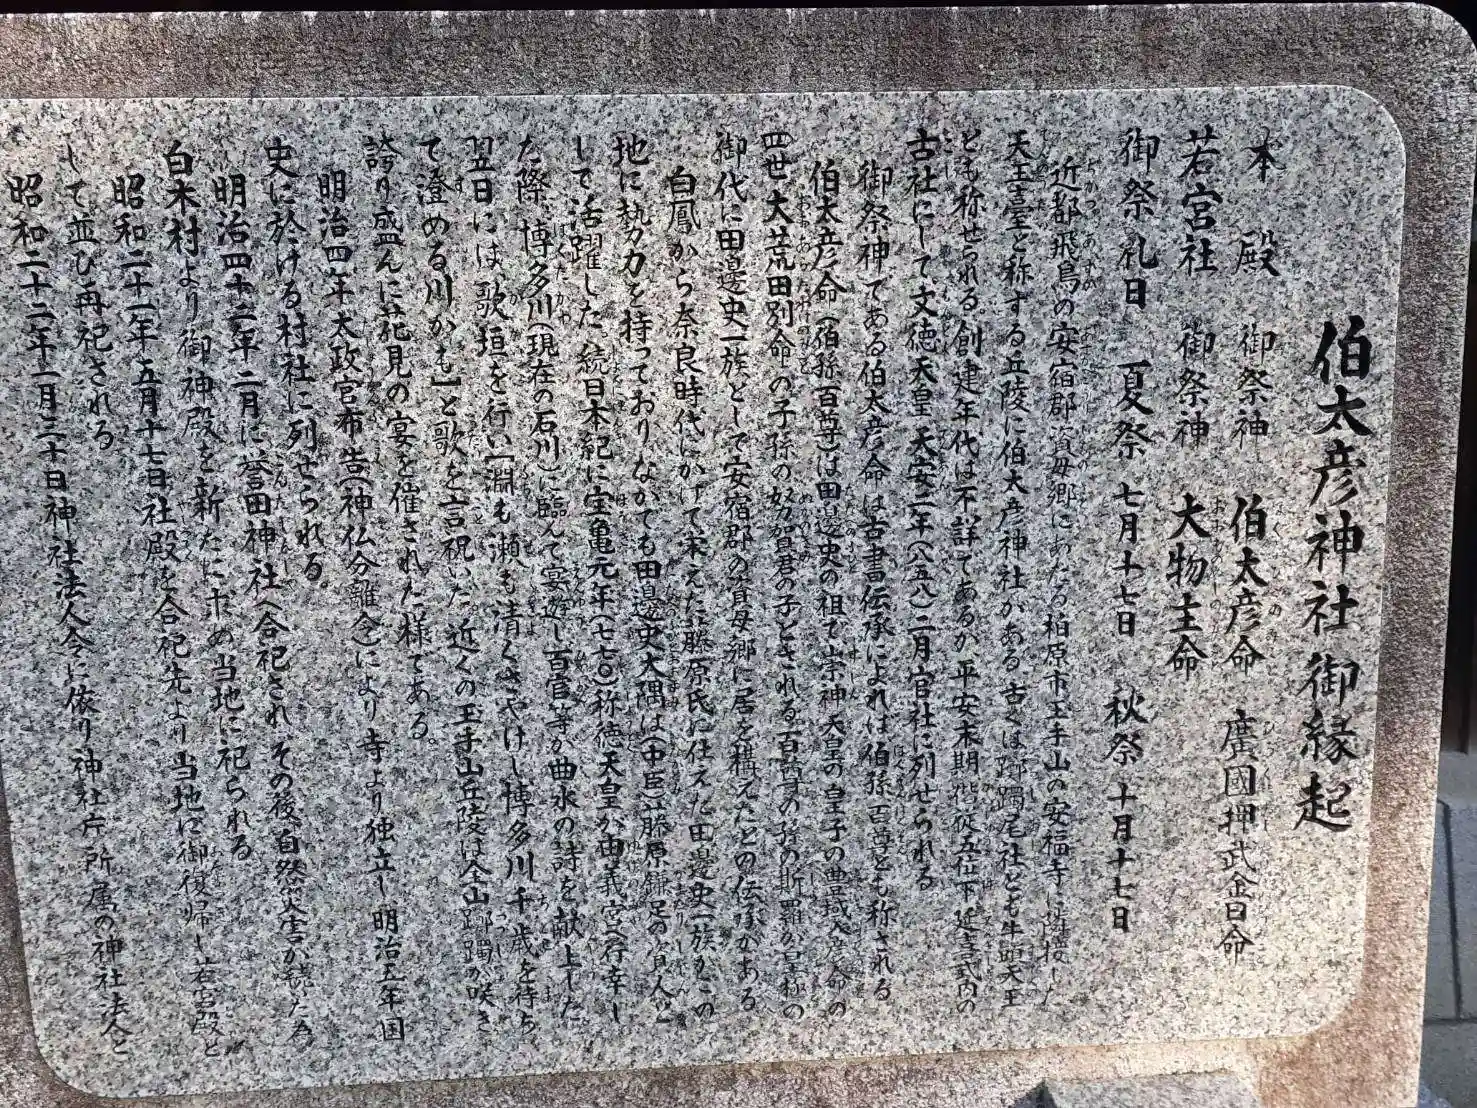 伯太彦神社御縁起
本殿 御祭神 伯太彦命 廣國押武金日命
若宮社 御祭神 大物主命
御祭礼日 夏祭 七月十七日 秋祭 十月十七日
近都飛鳥の安宿郡資母郷にあたる柏原市玉手山の安福寺に隣接した
天王臺と称する丘陵に伯太彦神社がある 古くは躑躅尾社とも牛頭天王
とも称せられる。創建年代は不詳であるが 平安末期 階従五位下 延喜式内の
古社にして文徳天皇 天安二年(八五八)二月官社に列せられる
御祭神である伯太彦命は古書伝承によれば伯孫百尊とも称される
伯太彦命(伯孫百尊)は田邊史の祖で崇神天皇の皇子の豊城入彦命の
四世 大荒田別命の子孫の努賀君の子とされる百尊の孫の斯羅が皇極の
御代に田邊史一族として安宿郡の資母郷に居を構えたとの伝承がある
白鳳から奈良時代にかけて栄えた藤原氏に仕えた田邊史一族がこの
地に勢力を持っており なかでも田邊史大隅は(中臣)藤原鎌足の 人と
して活躍した 続日本紀に宝亀元年(七七〇)称徳天皇が由義宮へ行幸し
た際、博多川(現在の石川)に臨んで宴遊し百官等が曲水の詩を献上した
翌日には、歌垣を行い【淵も瀬も清くさやけし博多川千歳を待ち
て澄める川かも】と歌を言祝いた 近くの玉手山丘陵は全山 躑躅が咲き
誇り盛んに花見の宴を催された様である。
明治四年太政官布告(神仏分離令)により寺より独立し明治五年国
史に於ける村社に列せられる。
明治四十二年二月に誉田神社へ合祀され その後 自然災害が続いた為
白木村より御神殿を新たに求め当地に祀られる
昭和二十一年五月十七日社殿を合祀先より当地に御復帰し若宮殿と
して並び再祀される
昭和二十二年一月二十日神社法人令に依り神社庁所属の神社法人と